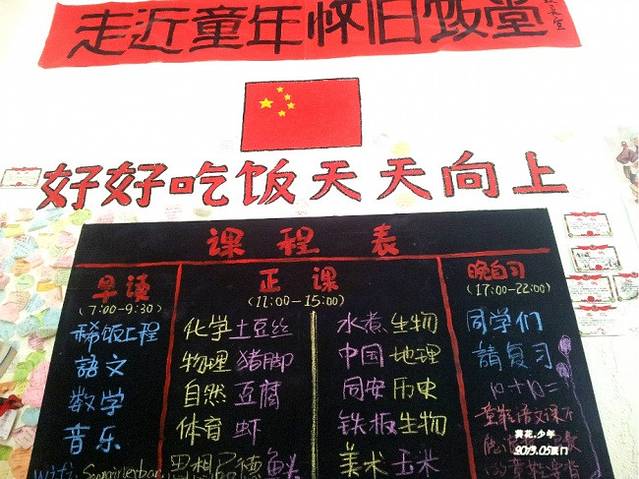 走近童年怀旧饭堂
好好吃饭天天向上
课程表
早读
(7:00-9:30)
稀饭上程
語文
数学
音乐
正课
(11:00-15:00)
化学土豆丝
物理猪脚
自然豆腐
体育虾
思想品德鱼头
水煮生物
中国地理
同安历史
铁板生物
美术玉米
晚自习
(17:00-22:00)
同学们
請复习
葵花.少年
2013.05厦门